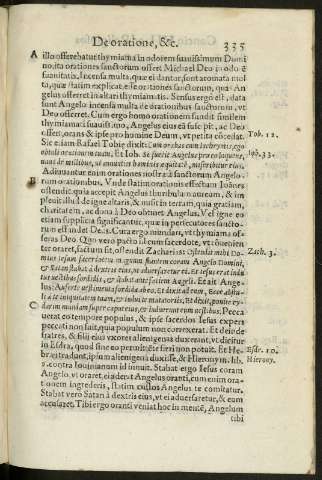 De oratione, &c. 335
A illo offerebatur thymiama in odorem suauissimum Domi
no, ita orationes sanctorum offert Michael Deo in odorē
suauitatis. Incensa multa, quæ ei dantur, sunt aromata mol
ta, quæ statim explicat esse orationes sanctorum, quas An
gelus offerret in altari thymiamatis. Sensus ergo est, data
sunt Angelo incensa multa de orationibus sanctorum, vt
Deo offerret. Cum ergo homo orationem fundit tanquam
thymiama suauissimū, Angelus eius eā suscipit, ac Deo
offert, orans & ipse pro homine Deum, vt petita cōcedat.
Tob. 12.
Sic etiam Rafael Tobiæ dixit: Cum orabas cum lachrymis, ego
obtuli orationem tuam. Et Iob. Si fuerit Angelus pro eo loquens,
Iob. 33.
vnus de millibus, vt annuntiet hominis æquitatē, miserebitur eius.
Adiuuantur enim orationes nostræ à sanctorum Angelo-
B rum orationibus. Vnde statim orationis effectum Ioānes
ostendit: quia accepit Angelus thuribulum aureum, & im
pleuit illud de igne altaris, & misit in terram, quia gratiam,
charitatem, ac dona à Deo obtinet Angelus. Vel igne eo
etiam supplicia significantur, quæ in persecutores sancto-
rum
offeras Deo. Quo vero pacto id eum sacerdote, vt cōuenien
ter oraret, factum sit, ostendit Zacharias: Ostendit mihi Do
Zach. 3.
minus Iesum sacerdotem magnum stantem coram Angelo Domini,
& Satan stabat à dextris eius, vt aduersaretur ei. Et Iesus erat indu
tus vestibus sordidis, & stabat ante faciem Angeli. Et ait Ange-
lus: Auferte vestimenta sordida ab eo. Et dixit ad eum, Ecce abstu-
li à te iniquitatem tuam, & indui te mutatorijs. Et dixit, ponite cy-
C darim mundam super caput eius, & induerunt eum vestibus. Pecca
uerat eo tempore populus, & ipse sacerdos Iesus expers
peccati non fuit, quia populum non correxerat. Et deinde
fratres, & filij eius vxores alienigenas duxerant, vt dicitur
in Esdra, quod sine eo permittēte fieri non potuit. Et He
Esdr. 10.
bræi tradunt, ipsum alienigenā duxisse, & Hieronym. lib.
Hierony.
1. contra Iouinianum id innuit. Stabat ergo Iesus coram
Angelo, vt oraret, ei aderat Angelus oranti, cum enim ora-
tionem ingrederis, statim custos Angelus te comitatur.
Stabat vero Satan à dextris eius, vt ei aduersaretur, & eum
accusaret. Tibi ergo oranti veniat hoc in mentē, Angelum
tibi